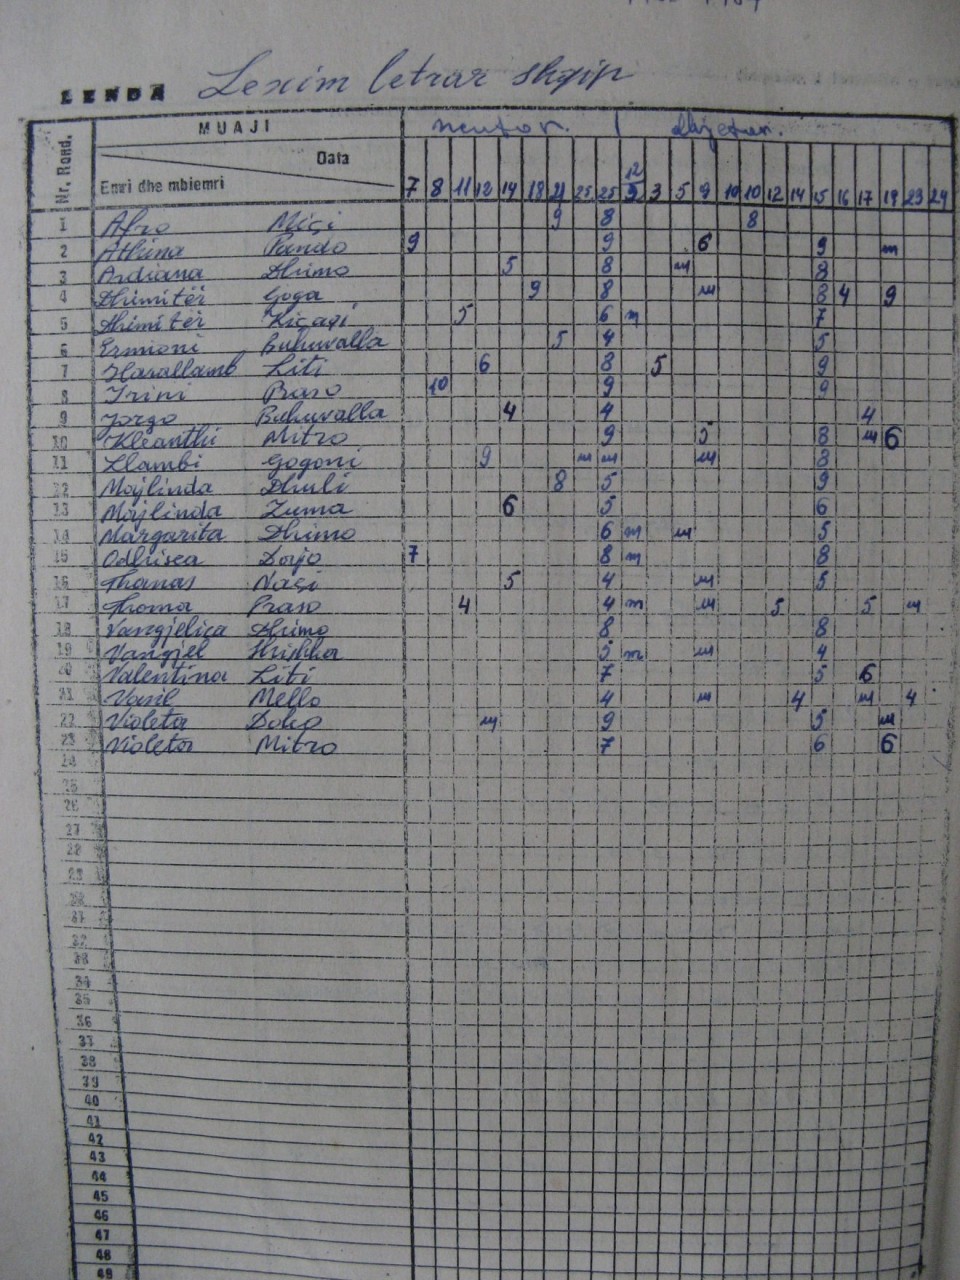 LENDA Lexim letrar shqip
MUAJI nentor. dhjetor.
Nr. Rend. Data
Emri dhe mbiemri 7 8 11 12 14 18 21 25 25 12 3 3 5 9 10 10 12 14 15 16 17 19 23 24
1 Afro Miçi 9 8 8
2 Athina Pando 9 9 6 9 m
3 Ardiana Dhimo 5 8 m 8
4 Dhimitër Goga 9 8 m 8 4 9
5 Dhimitër Kiçaqi 5 6 m 7
6 Ermioni Buhuvalla 5 4 5
7 Harallamb Liti 6 8 5 9
8 Irini Praso 10 9 9
9 Jorgo Buhuvalla 4 4 4
10 Kleanthi Mitro 9 5 8 m 6
11 Llambi Gogoni 9 m m m 8
12 Majlinda Dhuli 8 5 9
13 Majlinda Zuma 6 5 6
14 Margarita Dhimo 6 m m 5
15 Odhisea 7 8 m 8
16 Thanas 5 4 m 5
17 Thoma Praso 4 4 m m 5 5 m
18 Vangjelica Dhimo 8 8
19 Vangjel 5 m m 4
20 Valentina Liti 7 5 6
21 Vasil Mello 4 m 4 m 4
22 Violeta m 9 5 m
23 Violeta Mitro 7 6 6
24
25
26
27
28
29
30
31
32
33
34
35
36
37
38
39
40
41
42
43
44
45
46
47
48
49